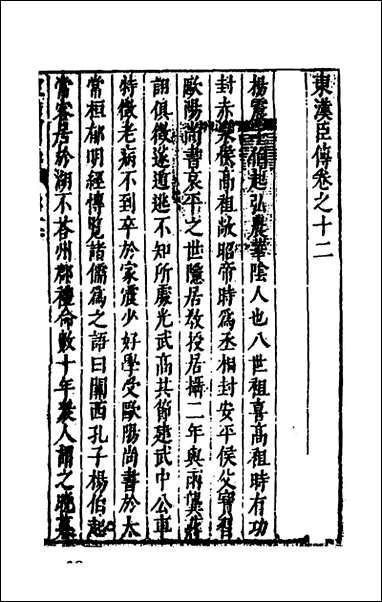 東漢臣傳卷之十二
楊震字伯起弘農華陰人也八世祖喜高祖時有功
封赤泉侯高祖敞昭帝時為丞相封安平侯父寶習
歐陽尚書哀平之世隱居敎授居攝二年與兩龔蔣
詡俱徵遂遁逃不知所處光武高其節建武中公車
特徵老病不到卒於家震少好學受歐陽尚書於太
常桓郁明經博覽諸儒為之語曰關西孔子楊伯起
常客居於湖不荅州郡禮命數十年衆人謂之晚暮